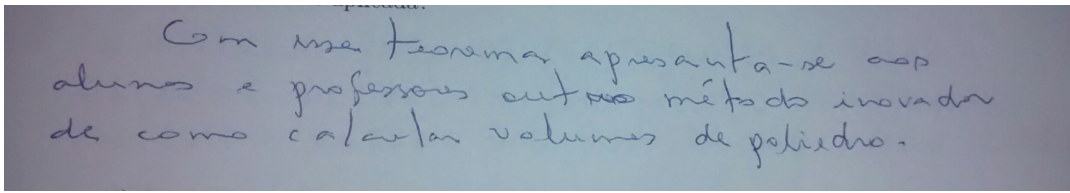 aplicada.
Com esse teorema apresenta-se aos
alunos e professores outro método inovador
de como calcular volumes de poliedro.